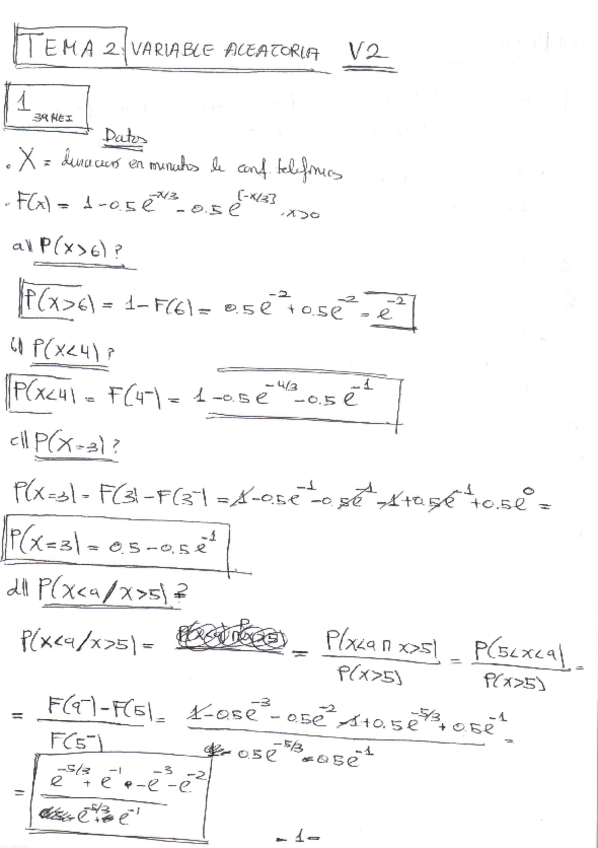 TEMA 2: VARIABLE ALEATORIA V2
1
Datos
. X = duración en minutos de conf. telefónica
. F(x) = 1-0.5e^{-x/3} - 0.5e^{[-x/3]} . x>0
a)) P(x>6)?
P(x>6) = 1-F(6) = 0.5e^{-2} + 0.5e^{-2} = e^{-2}
b) P(x<4)?
P(x<4) = F(4⁻) = 1-0.5e^{-4/3} - 0.5e^{-1}
c)) P(x=3)?
P(x=3) = F(3)-F(3⁻) = 1-0.5e^{-1}-0.5e^{-1}-1+0.5e^{-1}+0.5e^{0} =
P(x=3) = 0.5-0.5e^{-1}
d)) P(x<9/x>5)?
P(x<9/x>5) = = P(x<9∩x>5)/P(x>5) = P(5<x<9)/P(x>5) =
= F(9⁻)-F(5)/F(5⁻) = 1-0.5e^{-3}-0.5e^{-2}-1+0.5e^{-5/3}+0.5e^{-1}/0.5e^{-5/3} 0.5e^{-1} =
= e^{-5/3}+e^{-1}-e^{-3}-e^{-2}/e^{-5/3}+e^{-1}
-1-